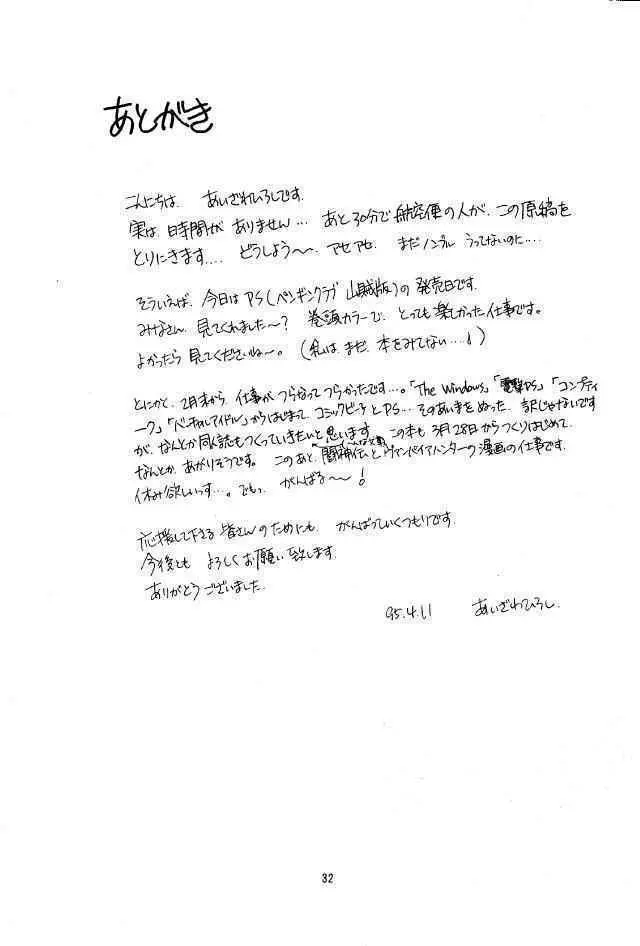 あとがき
こんにちは あいざわひろしです.
実は時間がありません… あと30分で航空便の人が、この原稿を
とりにきます…. どうしよう〜. アセアセ. まだノンブル うってないのに….
そういえば、今日はPS(ペンギンクラブ山賊版)の発売日です.
みなさん、見てくれました〜? 巻頭カラーで、とっても楽しかった仕事です。
よかったら見てくださいね〜。(私は、まだ、本をみてない….!)
とにかく、2月末から、仕事がつらなってつらかったです…。「The Windows」「電撃PS」「コンプティ
ーク」「バーチャルアイドル」からはじまって コミックピー子とPS… そのあいまをぬった、訳じゃないです
が、なんとか同人誌もつくっていきたいと思います. この本も、3月28日からつくりはじめて、
なんとか、あがりそうです。このあと、闘神伝とヴァンパイアハンターの漫画の仕事です.
休み欲しいっす…。でもっ、がんばる〜!
応援して下さる皆さんのためにも、がんばっていくつもりです.
今後とも よろしくお願い致します.
ありがとうございました.
95.4.11 あいざわひろし.
32